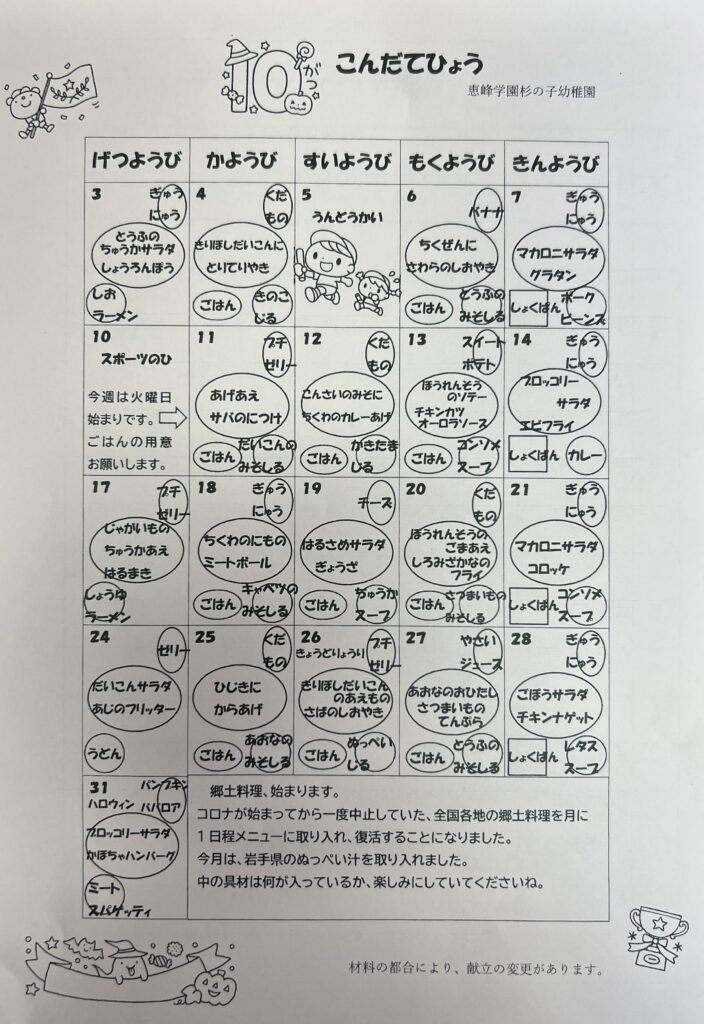 10がつ
こんだてひょう
恵峰学園杉の子幼稚園
げつようび かようび すいようび もくようび きんようび
3
ぎゅう
にゅう
とうふの
ちゅうかサラダ
しょうろんぽう
しお
ラーメン
4
くだ
もの
きりぼしだいこんに
とりてりやき
ごはん
きのこ
じる
5
うんどうかい
6
バナナ
ちくぜんに
さわらのしおやき
ごはん
とうふの
みそしる
7
ぎゅう
にゅう
マカロニサラダ
グラタン
しょくぱん
ポーク
ビーンズ
10
スポーツのひ
今週は火曜日
始まりです。
ごはんの用意
お願いします。
11
プチ
ゼリー
あげあえ
サバのにつけ
ごはん
だいこんの
みそしる
12
くだ
もの
こんさいのみそに
ちくわのカレーあげ
ごはん
かきたま
じる
13
スイート
ポテト
ほうれんそう
のソテー
チキンカツ
オーロラソース
ごはん
コンソメ
スープ
14
ぎゅう
にゅう
ブロッコリー
サラダ
エビフライ
しょくぱん
カレー
17
プチ
ゼリー
じゃがいもの
ちゅうかあえ
はるまき
しょうゆ
ラーメン
18
ぎゅう
にゅう
ちくわのにもの
ミートボール
ごはん
キャベツの
みそしる
19
チーズ
はるさめサラダ
ぎょうざ
ごはん
ちゅうか
スープ
20
くだ
もの
ほうれんそうの
ごまあえ
しろみざかなの
フライ
ごはん
さつまいもの
みそしる
21
ぎゅう
にゅう
マカロニサラダ
コロッケ
しょくぱん
コンソメ
スープ
24
ゼリー
だいこんサラダ
あじのフリッター
うどん
25
くだ
もの
ひじきに
からあげ
ごはん
あおなの
みそしる
26
きょうどりょうり
プチ
ゼリー
きりぼしだいこん
のあえもの
さばのしおやき
ごはん
ぬっぺい
じる
27
やさい
ジュース
あおなのおひたし
さつまいもの
てんぷら
ごはん
とうふの
みそしる
28
ぎゅう
にゅう
ごぼうサラダ
チキンナゲット
しょくぱん
レタス
スープ
31
ハロウィン
パンプキン
ババロア
ブロッコリーサラダ
かぼちゃハンバーグ
ミート
スパゲッティ
郷土料理、始まります。
コロナが始まってから一度中止していた、全国各地の郷土料理を月に
1日程メニューに取り入れ、復活することになりました。
今月は、岩手県のぬっぺい汁を取り入れました。
中の具材は何が入っているか、楽しみにしていてくださいね。
材料の都合により、献立の変更があります。